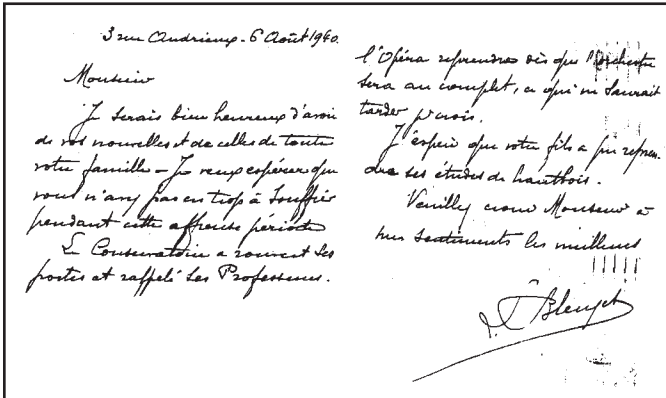 3 rue Andrieux - 6 Août 1940.
Monsieur
Je serais bien heureux d'avoir
de vos nouvelles et de celles de toute
votre famille - Je veux espérer que
vous n'avez pas eu trop à souffrir
pendant cette affreuse période
Le Conservatoire a rouvert ses
portes et rappelé ses Professeurs.
l'Opéra reprendra dès que l'orchestre
sera au complet, ce qui ne saurait
tarder je crois.
J'espère que votre fils a pu repren-
dre ses études de hautbois.
Veuillez croire Monsieur à
mes sentiments les meilleurs
Bleuzet